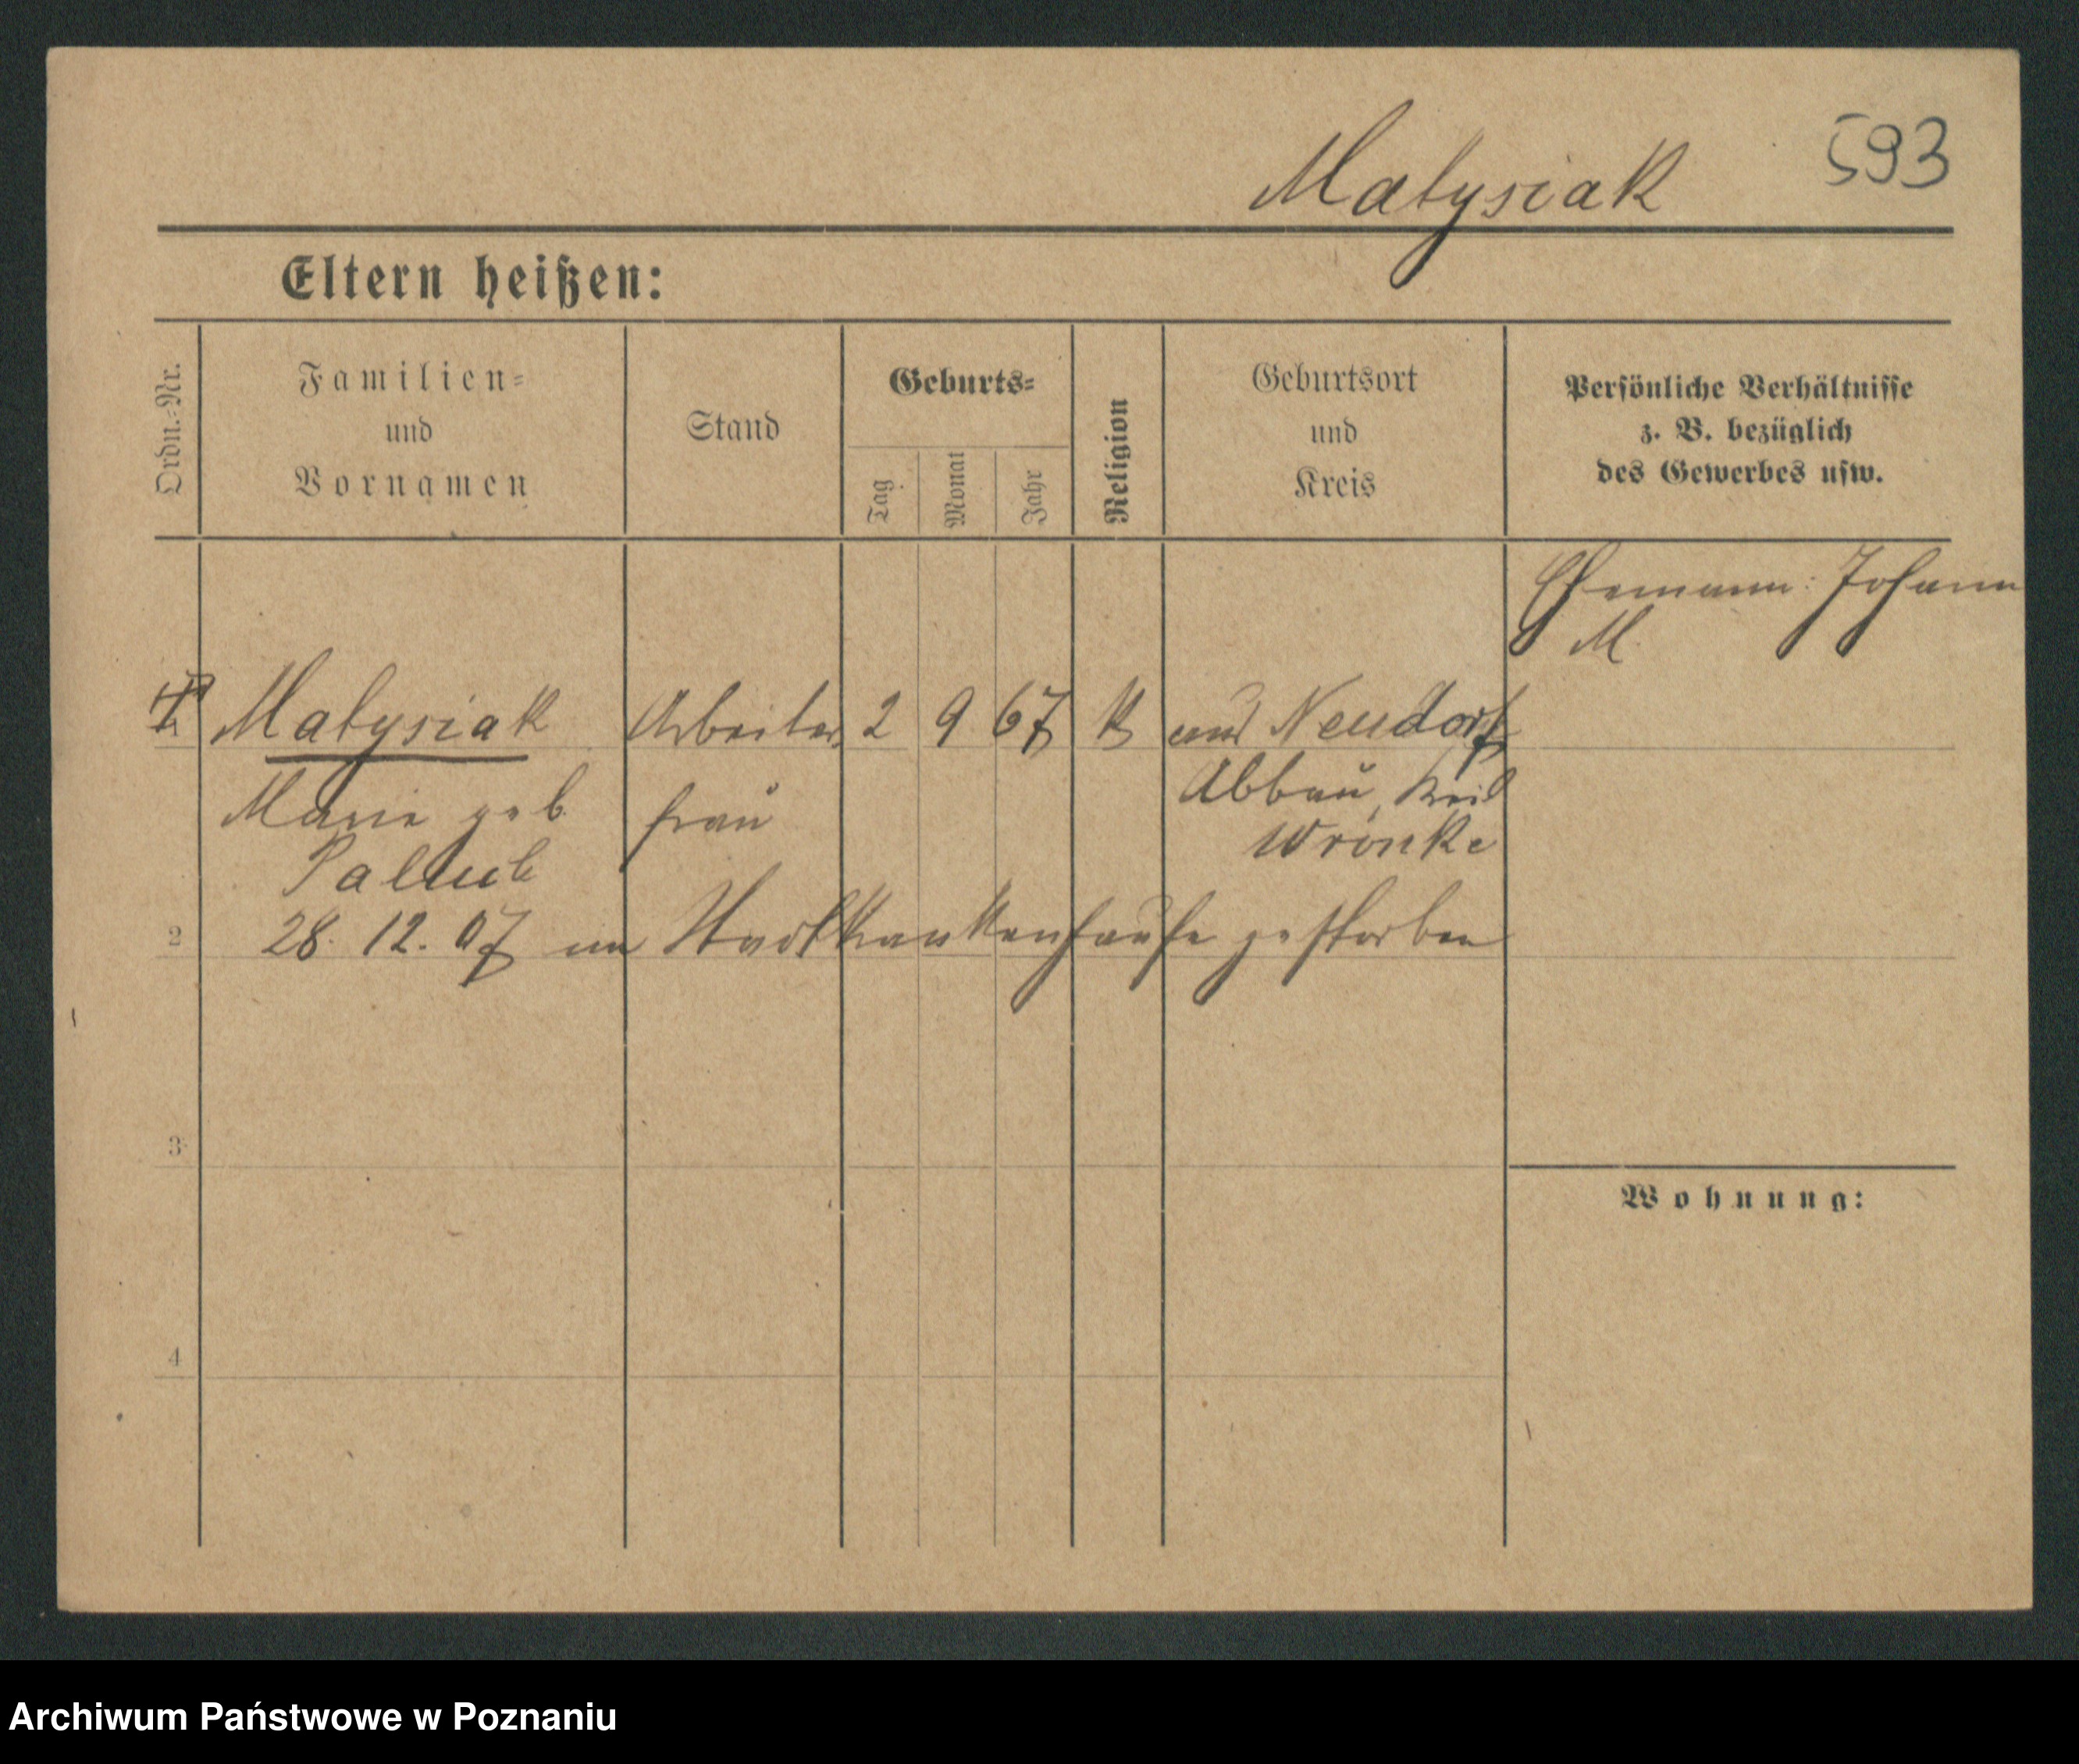 593
Matysiak
Eltern heißen:
Ordn.-Nr.
Familien-
und
Vornamen
Stand
Geburts-
Tag
Monat
Jahr
Religion
Geburtsort
und
Kreis
Persönliche Verhältnisse
z. B. bezüglich
des Gewerbes usw.
Ehemann: Johann
M.
Matysiak Arbeiter 2 9 67 K aus Neudorf
Marie geb. frau Abbau, Kreis
Wronke
28. 12. 07 im Stadtkrankenhause gestorben
2
3
4
Wohnung:
Archiwum Państwowe w Poznaniu